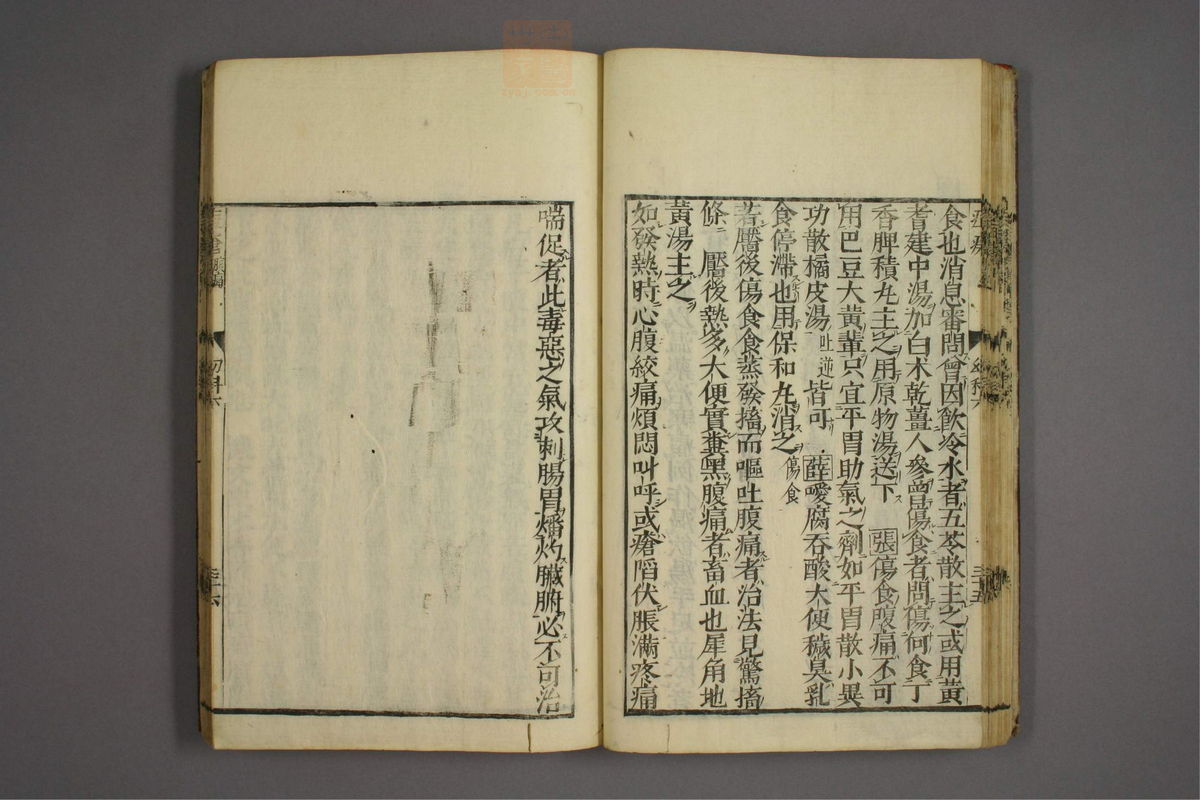 食也消息審問曾因飲冷水者五苓散主之或用黃
耆建中湯加白朮乾薑人參曾傷食者問傷何食丁
香脾積丸主之用原物湯送下 張傷食腹痛不可
用巴豆大黃輩只宜平胃助氣之劑如平胃散小異
功散橘皮湯吐逆皆可 薛噯腐吞酸大便穢臭乳
食停滯也用保和丸消之傷食
若靨後傷食食蒸發搐而嘔吐腹痛者治法見驚搐
條 靨後熱多大便實糞黑腹痛者畜血也犀角地
黃湯主之
如發熱時心腹絞痛煩悶叫呼或瘡陷伏脹滿疼痛
喘促者此毒惡之氣攻刺腸胃燔灼臟腑必不可治
幼科六